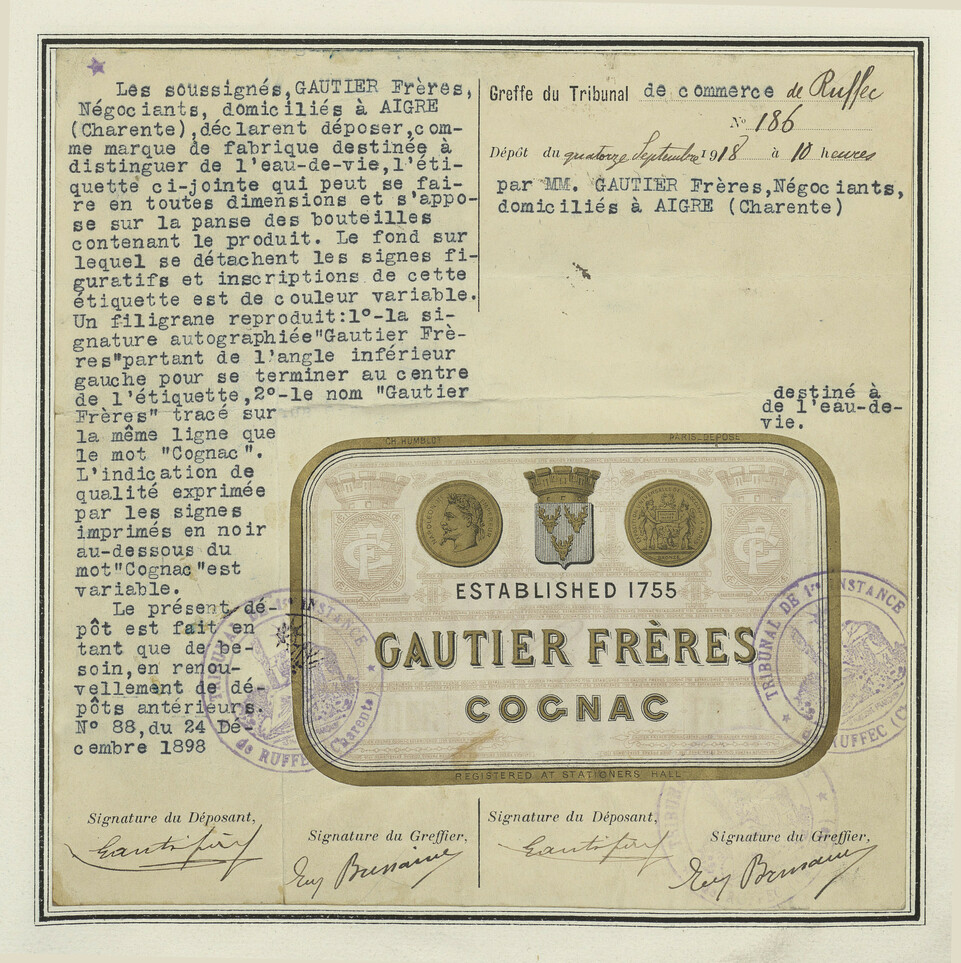 Les soussignés,GAUTIER Frères,
Négociants, domiciliés à AIGRE
(Charente),déclarent déposer,com-
me marque de fabrique destinée à
distinguer de l'eau-de-vie,l'éti-
quette ci-jointe qui peut se fai-
re en toutes dimensions et s'appo-
se sur la panse des bouteilles
contenant le produit. Le fond sur
lequel se détachent les signes fi-
guratifs et inscriptions de cette
étiquette est de couleur variable.
Un filigrane reproduit:1º-la si-
gnature autographiée"Gautier Frè-
res"partant de l'angle inférieur
gauche pour se terminer au centre
de l'étiquette,2º-le nom "Gautier
Frères" tracé sur
la même ligne que
le mot "Cognac".
L'indication de
qualité exprimée
par les signes
imprimés en noir
au-dessous du
mot"Cognac"est
variable.
Le présent dé-
pôt est fait en
tant que de be-
soin,en renou-
vellement de dé-
pôts antérieurs.
Nº 88,du 24 Dé-
cembre 1898
Greffe du Tribunal de commerce de Ruffec
Nº 186
Dépôt du quatorze Septembre 1918 à 10 heures
par MM. GAUTIER Frères,Négociants,
domiciliés à AIGRE (Charente)
destiné à
de l'eau-de-
vie.
CH. HUMBLOT
PARIS. DÉPOSÉ
ESTABLISHED 1755
GAUTIER FRÈRES
COGNAC
REGISTERED AT STATIONERS HALL
TRIBUNAL DE 1re INSTANCE
de RUFFEC (Charente)
TRIBUNAL DE 1re INSTANCE
RUFFEC (C
TRIBU
Signature du Déposant,
Signature du Greffier,
Signature du Déposant,
Signature du Greffier,